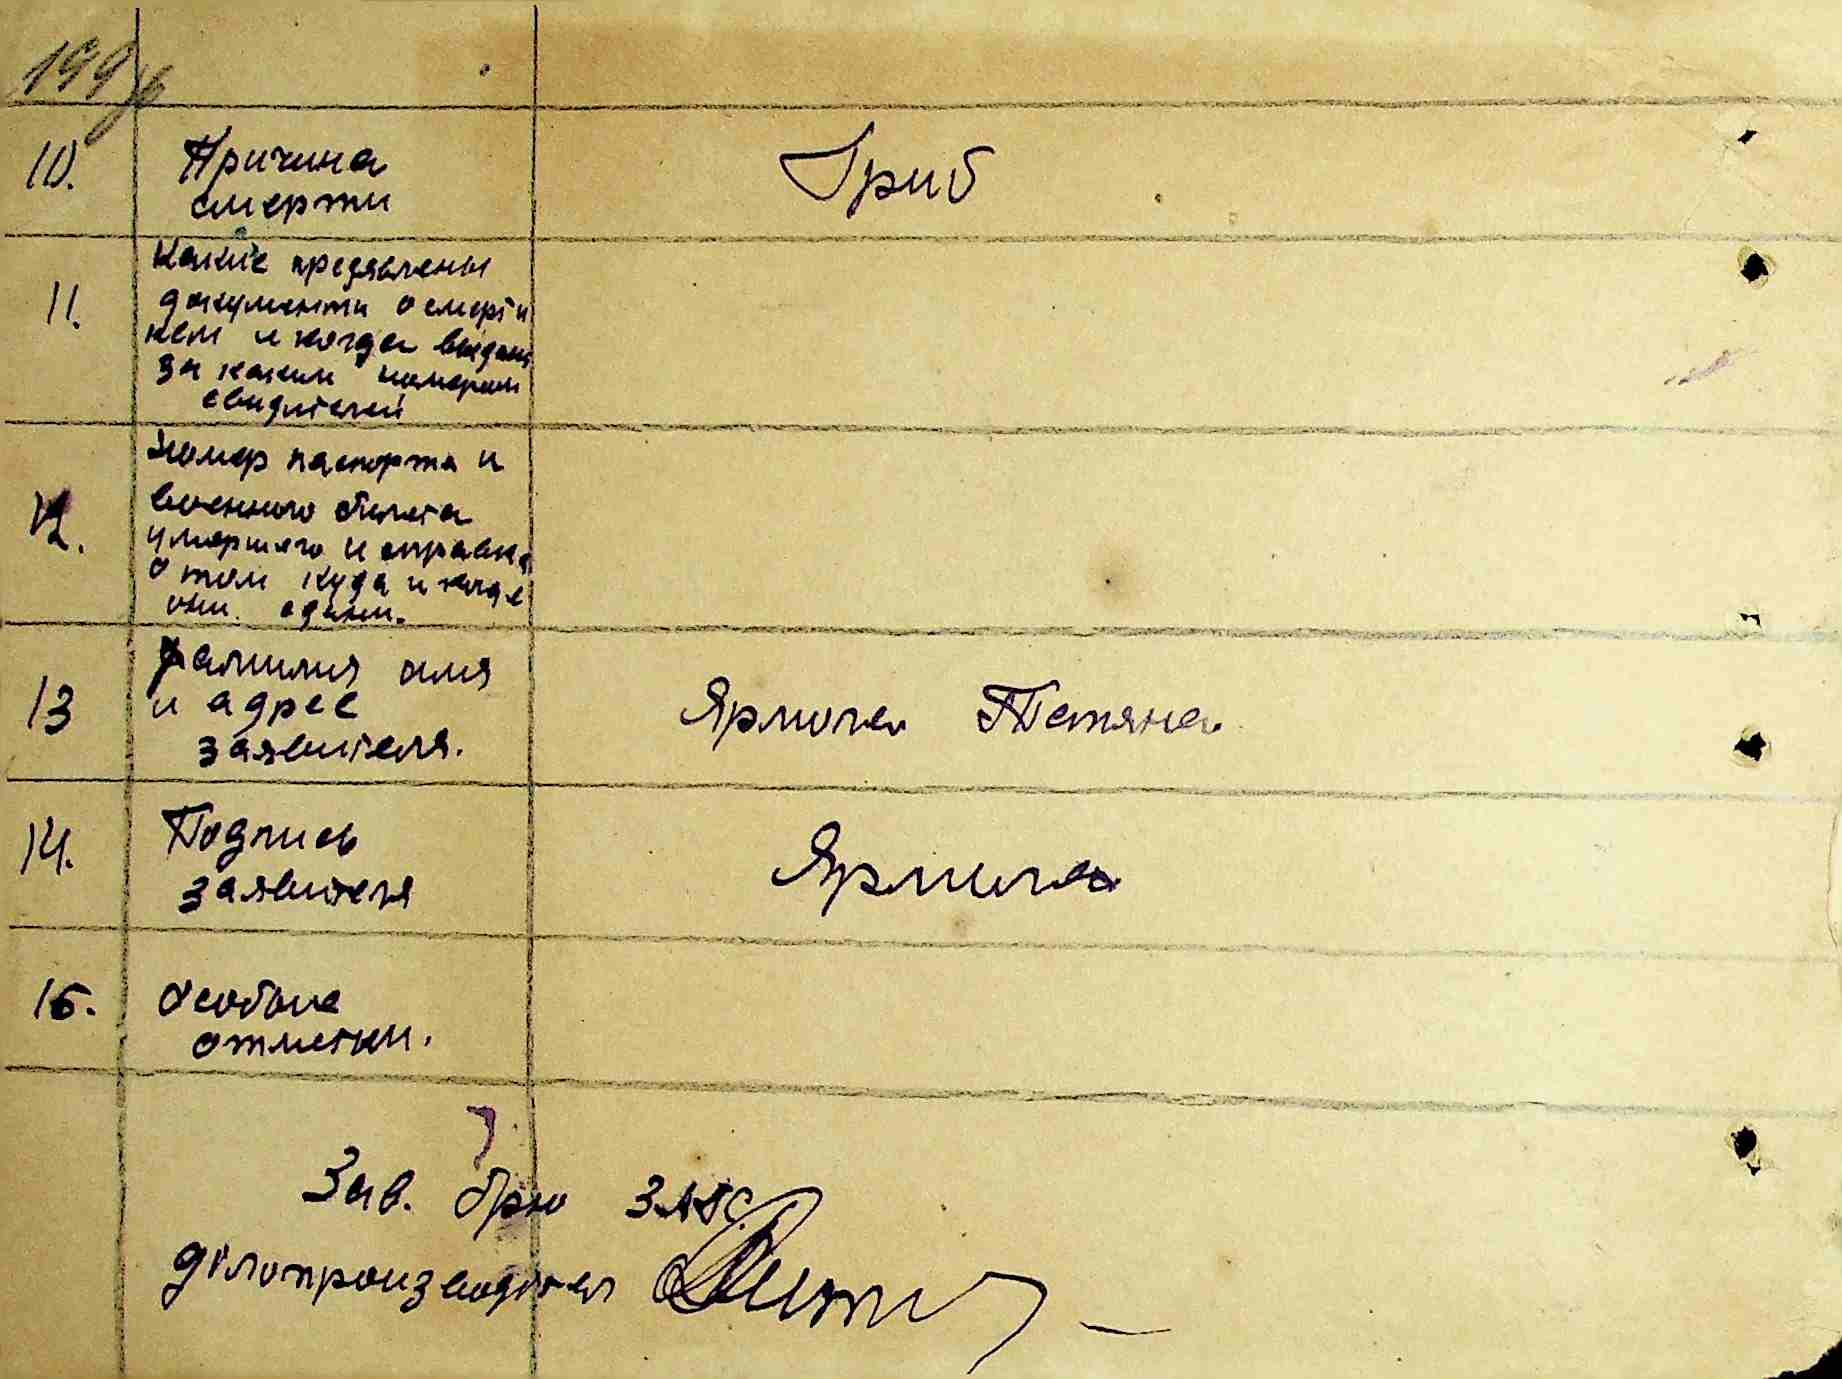 10. Причина
смерти
Гриб
11. Какие предявлены
документи о смерти
кем и когда выданы
за каким номером
свидителей
12. Номер паспорта и
военного билета
умершего и справка
о том куда и когда
они сданы.
13 Фамилия имя
и адрес
заявителя.
Ярмола Тетяна
14. Подпись
заявителя
Ярмола
15. Особые
отметки.
Зав. брю ЗАГС
ділопроизводител